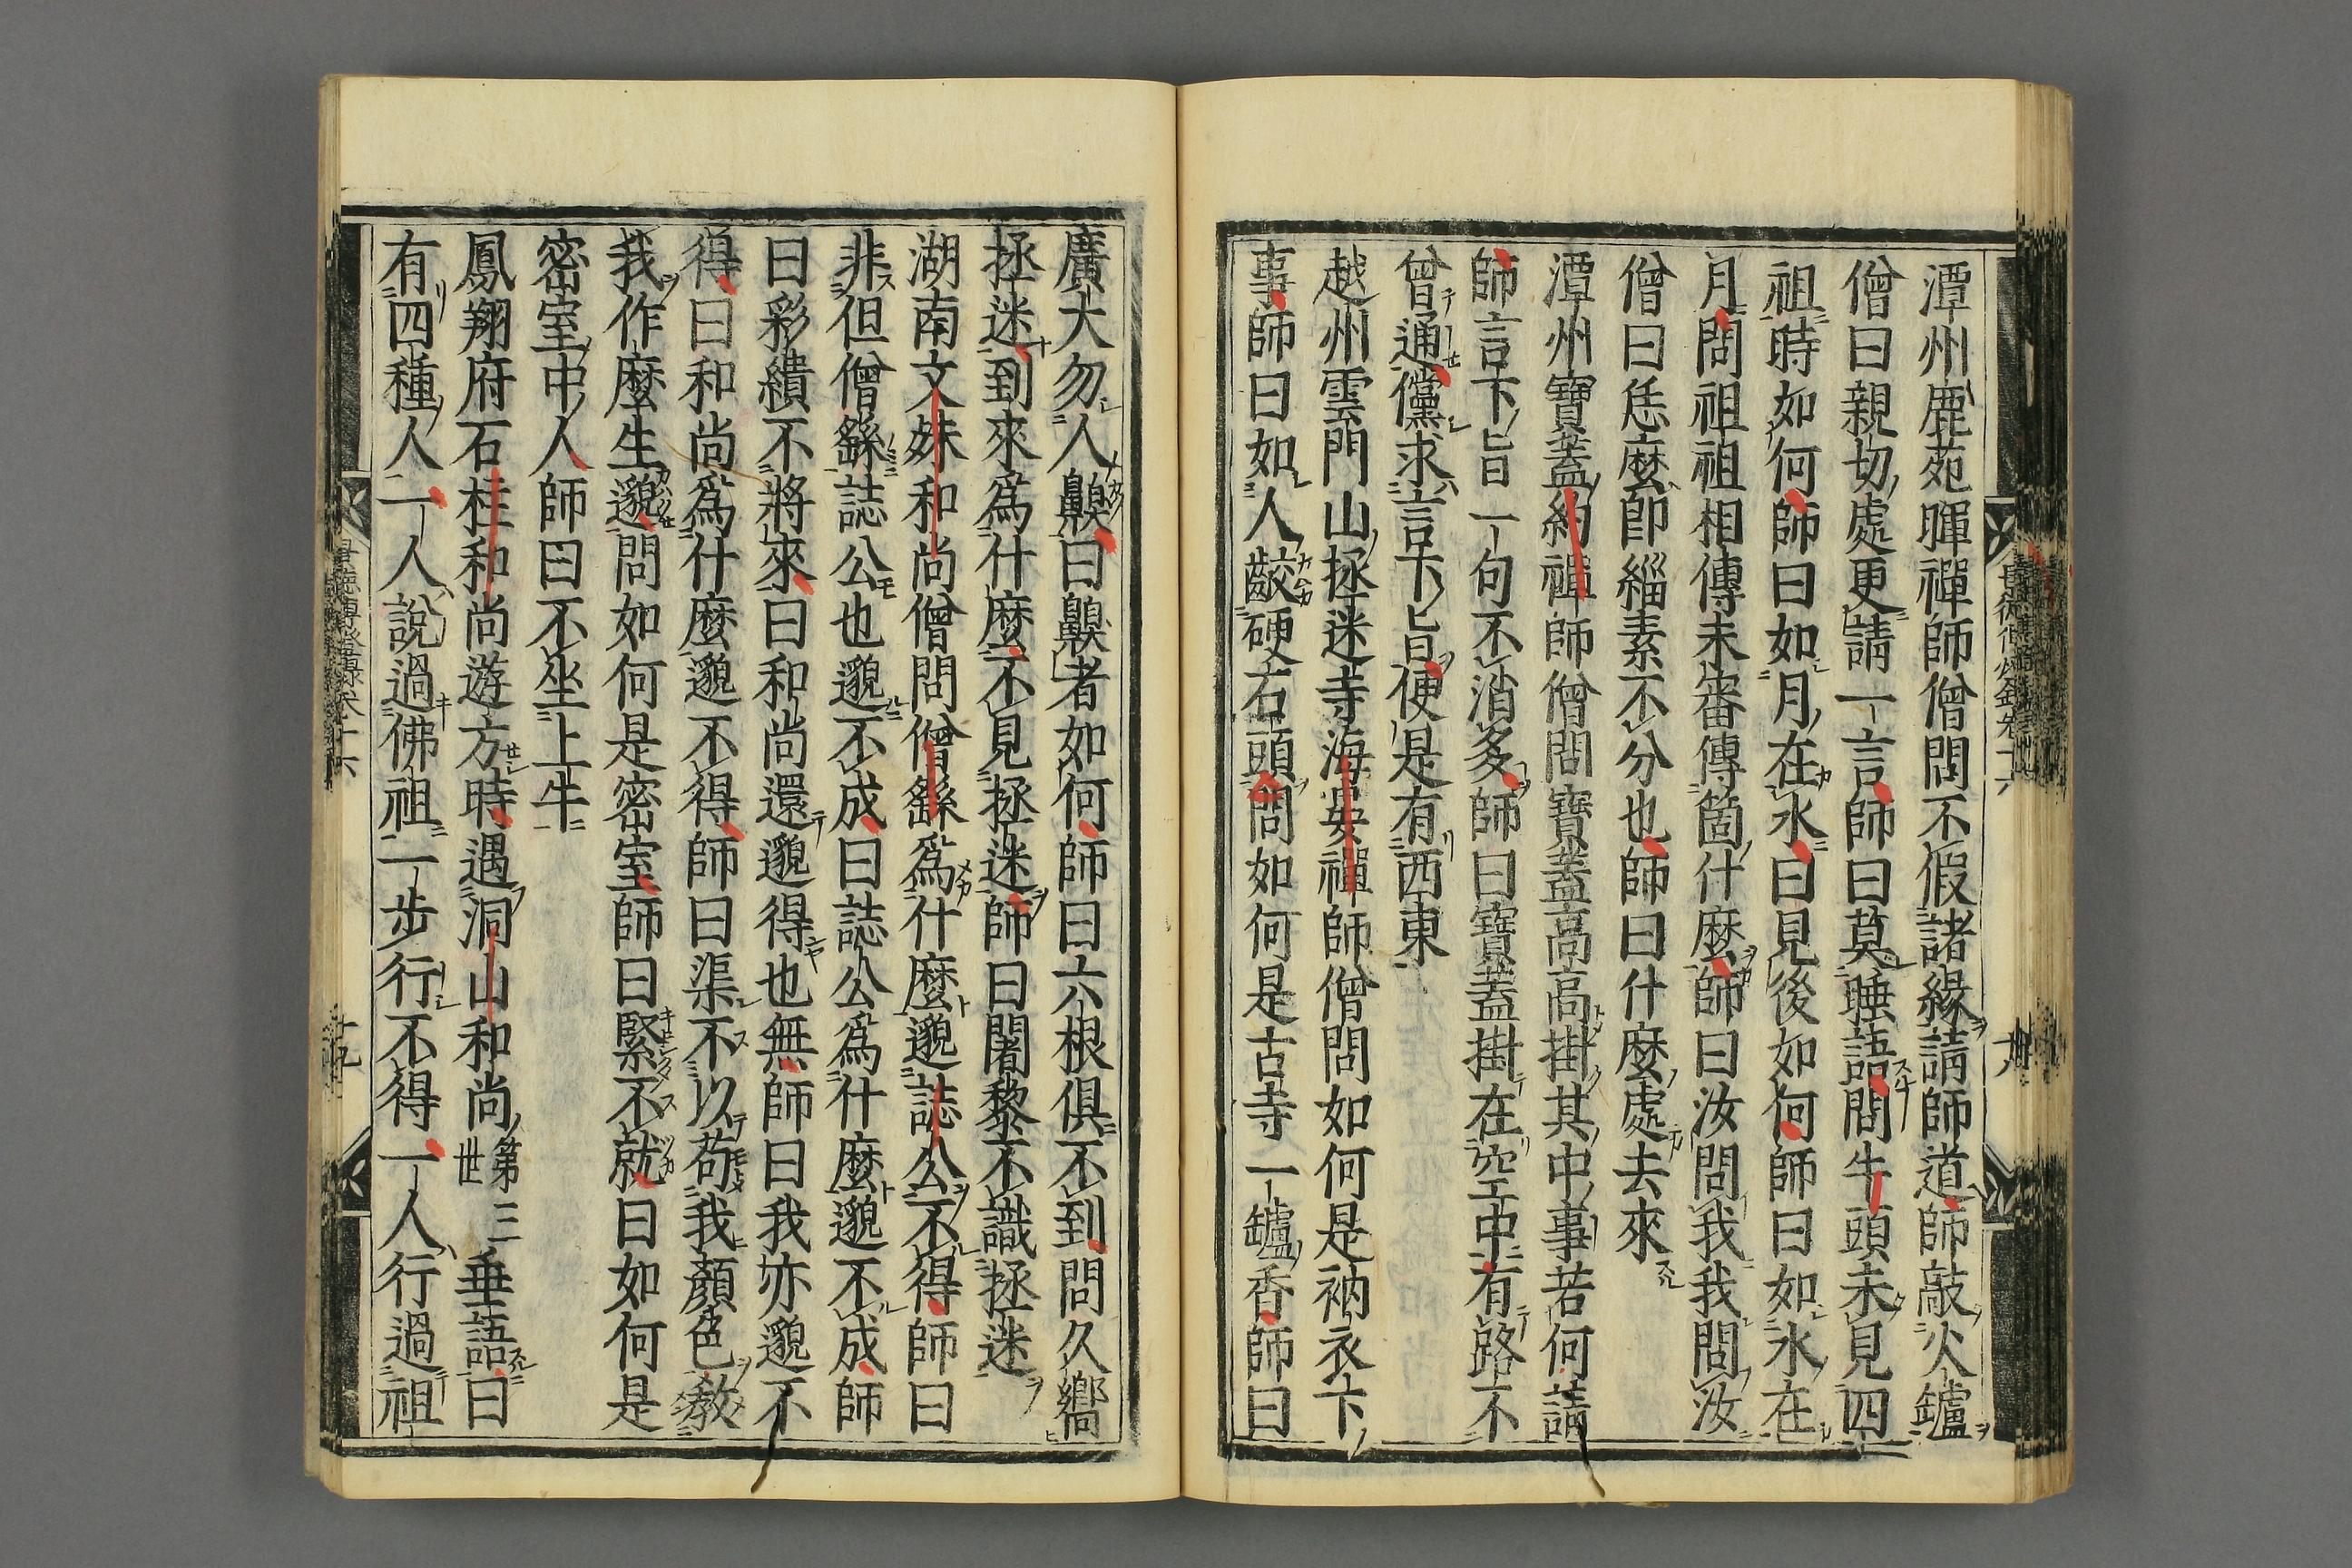 潭州鹿苑暉禪師僧問不假諸緣請師道師敲火鑪
僧曰親切處更請一言師曰莫睡語問牛頭未見四
祖時如何師曰如月在水曰見後如何師曰如水在
月問祖祖相傳未審傳箇什麼師曰汝問我我問汝
僧曰恁麼即緇素不分也師曰什麼處去來
潭州寶蓋約禪師僧問寶蓋高高掛其中事若何請
師言下旨一句不消多師曰寶蓋掛在空中有路不
曾通儻求言下旨便是有西東
越州雲門山拯迷寺海晏禪師僧問如何是衲衣下
事師曰如人齩硬石頭問如何是古寺一鑪香師曰
廣大勿人齅曰齅者如何師曰六根俱不到問久嚮
拯迷到來爲什麼不見拯迷師曰闍黎不識拯迷
湖南文殊和尚僧問僧繇爲什麼邈誌公不得師曰
非但僧繇誌公也邈不成曰誌公爲什麼邈不成師
曰彩繢不將來曰和尚還邈得也無師曰我亦邈不
得曰和尚爲什麼邈不得師曰渠不以苟我顏色敎
我作麼生邈問如何是密室師曰緊不就曰如何是
密室中人師曰不坐上牛
鳳翔府石柱和尚遊方時遇洞山和尚第三世垂語曰
有四種人一人說過佛祖一步行不得一人行過祖